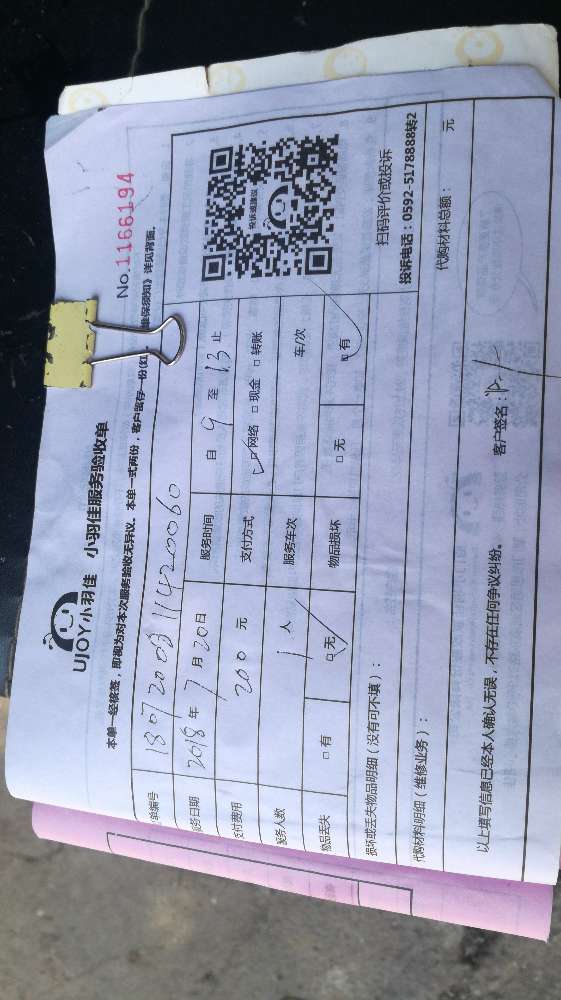 UJOY小羽佳 小羽佳服务验收单
No.1166194
本单一经核签，即视为对本次服务验收无异议。本单一式两份，客户留存一份(红 维保须知》详见背面。
单编号 1807200311420060
服务日期 2018年7月20日 服务时间 自 9 至 13 止
支付费用 200 元 支付方式 □网络 □现金 □转账
服务人数 1 人 服务车次 车/次
物品丢失 □有 □无 物品损坏 □无 □有
投诉或建议
扫码评价或投诉
投诉电话：0592-5178888转2
损坏或丢失物品明细（没有可不填）：
代购材料明细（维修业务）： 代购材料总额： 元
以上填写信息已经本人确认无误，不存在任何争议纠纷。 客户签名：